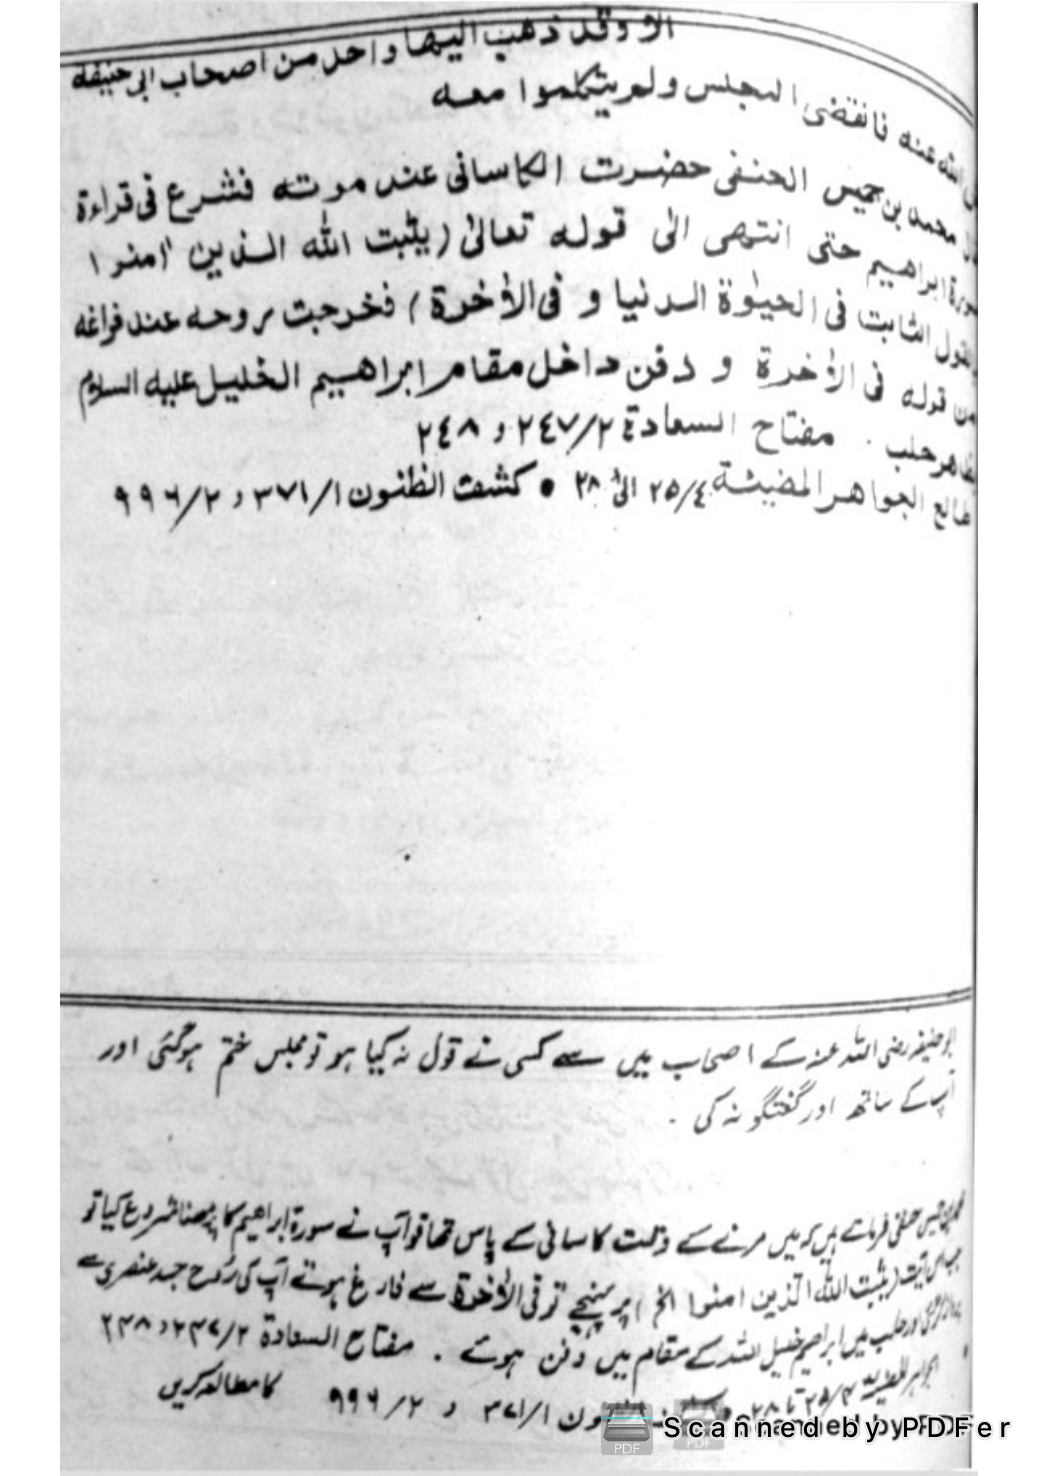 الا وقد ذهب اليها واحد من اصحاب ابی حنیفه
الله عنه فانقضى المجلس ولم يتكلموا معه
محمد بن خميس الحنفى حضرت الكاسانى عند موته فشرع فى قراءة
سورة ابراهيم حتى انتهى الى قوله تعالىٰ (يثبت الله الذين اٰمنوا
بالقول الثابت فى الحيٰوة الدنيا و فى الاٰخرة) فخرجت روحه عند فراغه
من قوله فى الاٰخرة و دفن داخل مقام ابراهيم الخليل عليه السلام
بظاهر حلب . مفتاح السعادة ٢٤٧/٢ و ٢٤٨
طالع الجواهر المضيئة ٢٥/٤ الىٰ ٢٨ • كشف الظنون ٣٧١/١ و ٩٩٦/٢
ابوحنیفہ رضی اللہ عنہ کے اصحاب میں سے کسی نے قول نہ کیا ہو تو مجلس ختم ہوگئی اور
آپ کے ساتھ اور گفتگو نہ کی .
حنفی فرماتے ہیں کہ میں مرنے کے وقت کاسانی کے پاس تھا تو آپ نے سورۃ ابراہیم کا پڑھنا شروع کیا تو
جب اس آیت (یثبت اللہ الّذین امنوا الخ) پر پہنچے تو فی الاٰخرۃ سے فارغ ہوتے آپ کی رُوح جسد عنصری سے
اور حلب میں ابراہیم خلیل اللہ کے مقام میں دفن ہوئے . مفتاح السعادۃ ۲۴۷/۲ و ۲۴۸
الجواہر المضیئۃ ۲۵/۴ تا ۲۸ ۳۷۱/۱ و ۹۹۶/۲ کا مطالعہ کریں
Scanned by PDFer